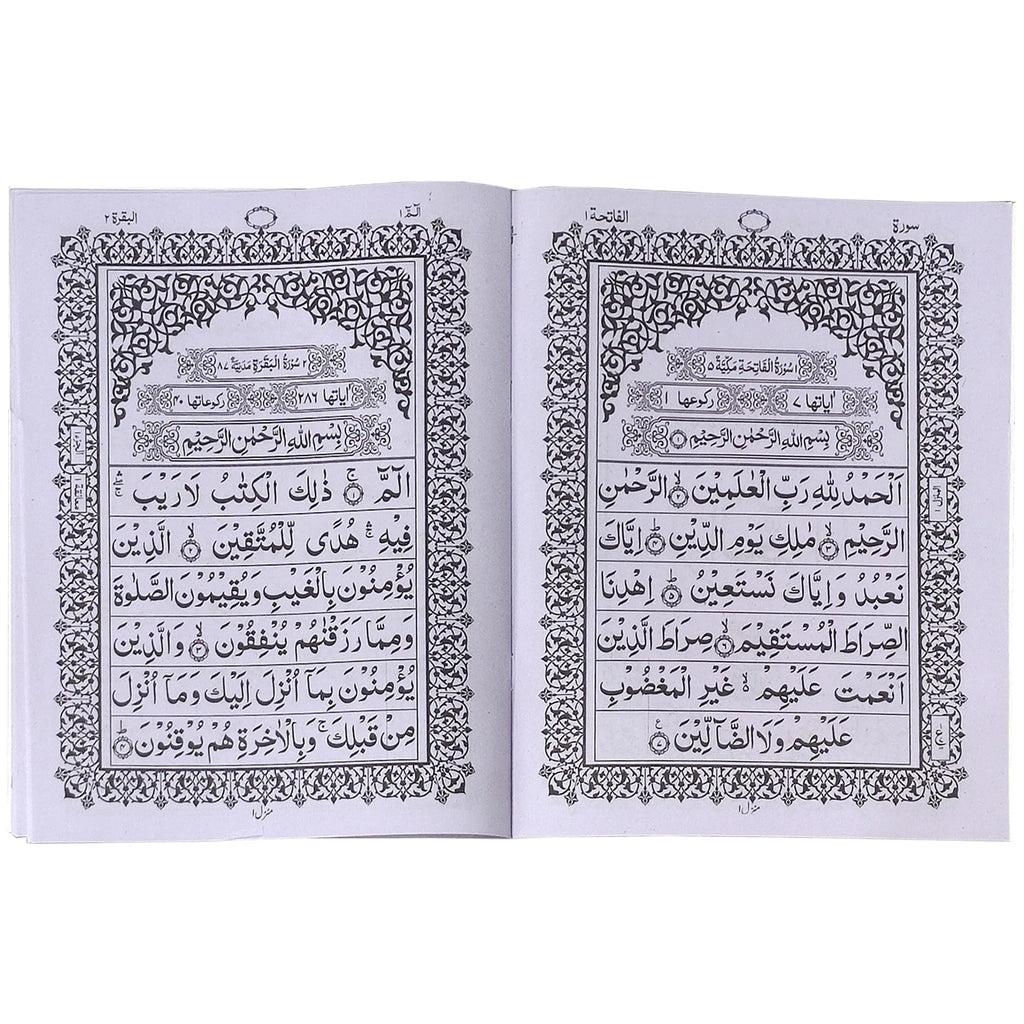 سورة الفاتحة ١
١ سُوْرَةُ الْفَاتِحَةِ مَكِّيَّةٌ ٥
اٰیاتها ٧ رکوعها ١
بِسْمِ اللهِ الرَّحْمٰنِ الرَّحِیْمِ ١
اَلْحَمْدُ لِلهِ رَبِّ الْعٰلَمِیْنَ ۙ ٢ الرَّحْمٰنِ
الرَّحِیْمِ ۙ ٣ مٰلِكِ یَوْمِ الدِّیْنِ ؕ ٤ اِیَّاكَ
نَعْبُدُ وَ اِیَّاكَ نَسْتَعِیْنُ ؕ ٥ اِهْدِنَا
الصِّرَاطَ الْمُسْتَقِیْمَ ۙ ٦ صِرَاطَ الَّذِیْنَ
اَنْعَمْتَ عَلَیْهِمْ ۙ۬ غَیْرِ الْمَغْضُوْبِ
عَلَیْهِمْ وَلَا الضَّآلِّیْنَ ٧ ع
منزل ١
الٓمّٓ ١ البقرة ٢
٢ سُوْرَةُ الْبَقَرَةِ مَدَنِیَّةٌ ٨٧
اٰیاتها ٢٨٦ رکوعاتها ٤٠
بِسْمِ اللهِ الرَّحْمٰنِ الرَّحِیْمِ
الٓمّٓ ۚ ١ ذٰلِكَ الْكِتٰبُ لَا رَیْبَ ۛۖۚ
فِیْهِ ۛۚ هُدًی لِّلْمُتَّقِیْنَ ۙ ٢ الَّذِیْنَ
یُؤْمِنُوْنَ بِالْغَیْبِ وَ یُقِیْمُوْنَ الصَّلٰوةَ
وَمِمَّا رَزَقْنٰهُمْ یُنْفِقُوْنَ ۙ ٣ وَالَّذِیْنَ
یُؤْمِنُوْنَ بِمَاۤ اُنْزِلَ اِلَیْكَ وَمَاۤ اُنْزِلَ
مِنْ قَبْلِكَ ۚ وَبِالْاٰخِرَةِ هُمْ یُوْقِنُوْنَ ؕ ٤
منزل ١